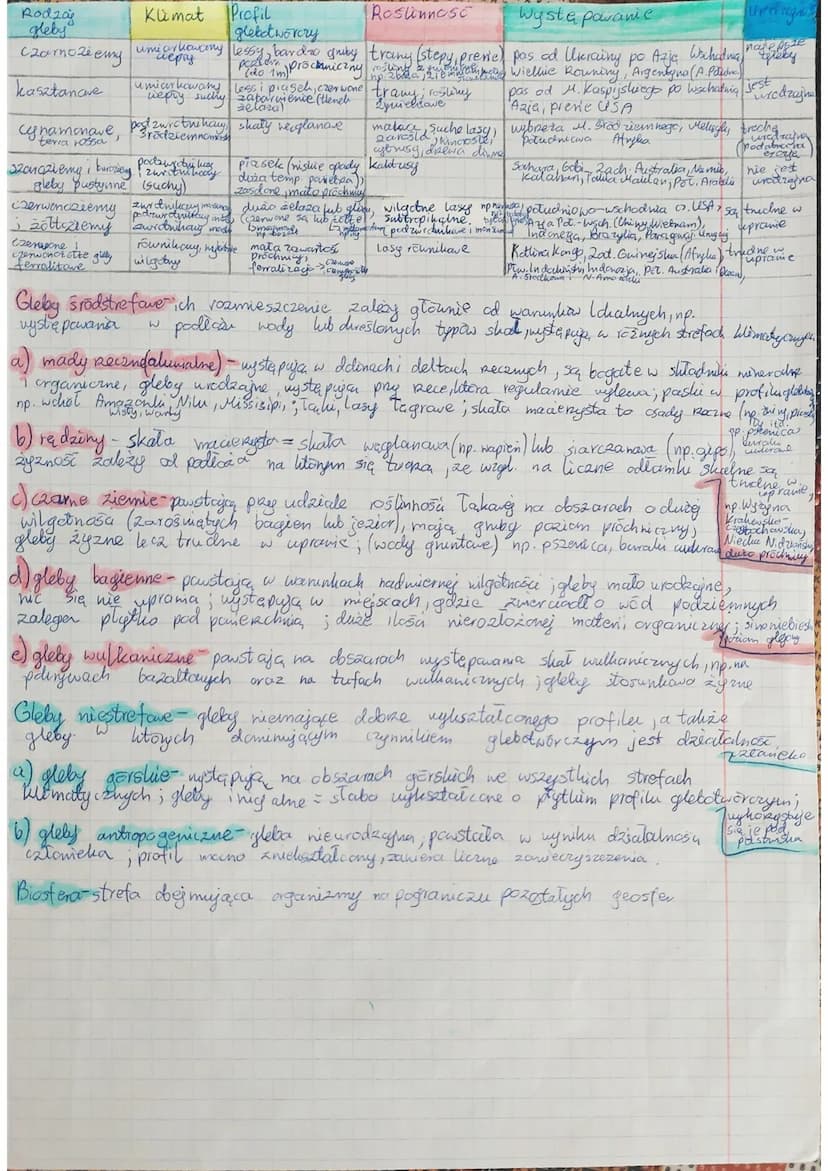 Rodzaj gleby | Klimat | Profil glebotwórczy | Roślinność | Występowanie
czarnoziemy | umiarkowany ciepły | lessy, bardzo gruby poziom próchniczny (do 1m) | trawy (stepy, prerie) | pas od Ukrainy po Azję Wschodnią, Wielkie Równiny, Argentyna | najlepsze gleby
kasztanowe | umiarkowany ciepły suchy | less i piasek, czerwone zabarwienie (tlenek żelaza) | trawy, rośliny | pas od M. Kaspijskiego po wschodnią Azję, prerie USA | jest urodzajna
cynamonowe, terra rossa | podzwrotnikowy, śródziemnomorski | skały węglanowe | makia, suche lasy, zarośla, winorośl, cytrusy, drzewa | wybrzeża M. Śródziemnego, Meksyk, południowa Afryka | trochę urodzajna
szaroziemy i buroziemy gleby pustynne | podzwrotnikowy i zwrotnikowy (suchy) | piasek (niskie opady duża temp. powietrza) zasolone, mało próchnicy | kaktusy | Sahara, Gobi, Zach. Australia, Namib, Kalahari, Takla Makan, Pół. Arabski | nie jest urodzajna
czerwonoziemy i żółtoziemy | dużo żelaza lub glinu, (czerwone są lub żółte) | wilgotne lasy subtropikalne, | południowo-wschodnia cz. USA, Azja Pół.-Wsch. (Chiny, Wietnam), Indonezja, Brazylia, Paragwaj, Urugwaj | są trudne w uprawie
czerwone i czerwonożółte gleby ferralitowe | równikowy, wybitnie wilgotny | mała zawartość próchnicy, ferralizacja | lasy równikowe | Kotlina Konga, Zat. Gwinejska (Afryka), Płw. Indochiński, Indonezja, Pół. Australia i A. Środkowa i N. Amazonki | trudne w uprawie
Gleby śródstrefowe - ich rozmieszczenie zależy głównie od warunków lokalnych, np.
występowania w podłożu wody lub określonych typów skał, występują w różnych strefach klimatycznych
a) mady rzeczne (aluwialne) - występują w dolinach i deltach rzecznych, są bogate w składniki mineralne
i organiczne, gleby urodzajne, występują przy rzece, która regularnie wylewa; paski w profilu glebowym
np. wokół Amazonki, Nilu, Missisipi; łąki, lasy łęgowe; skała macierzysta to osady rzeczne (np. żwiry, piaski,
Wisły, Warty
iły itd.
np. pszenica
buraki
cukrowe
b) rędziny - skała macierzysta = skała węglanowa (np. wapień) lub siarczanowa (np. gips),
żyzność zależy od podłoża na którym się tworzą, ze wzgl. na liczne odłamki skalne są
trudne w uprawie,
np. Wyżyna
Krakowsko-
Częstochowska,
Niecka Nidziańska
dużo próchnicy
c) czarne ziemie - powstają przy udziale roślinności łąkowej na obszarach o dużej
wilgotności (zarośniętych bagien lub jezior), mają gruby poziom próchniczny,
gleby żyzne lecz trudne w uprawie; (wody gruntowe) np. pszenica, buraki cukrowe
d) gleby bagienne - powstają w warunkach nadmiernej wilgotności; gleby mało urodzajne,
nic się nie uprawia; występują w miejscach, gdzie zwierciadło wód podziemnych
zalega płytko pod powierzchnią; duże ilości nierozłożonej materii organicznej; sinoniebieski
poziom glejowy
e) gleby wulkaniczne - powstają na obszarach występowania skał wulkanicznych, np. na
pokrywach bazaltowych oraz na tufach wulkanicznych; gleby stosunkowo żyzne
Gleby niestrefowe - gleby niemające dobrze wykształconego profilu, a także
gleby w których dominującym czynnikiem glebotwórczym jest działalność
człowieka
a) gleby górskie - występują na obszarach górskich we wszystkich strefach
klimatycznych; gleby inicjalne = słabo wykształcone o płytkim profilu glebotwórczym;
wykorzystuje
się je pod
pastwiska
b) gleby antropogeniczne - gleba nieurodzajna, powstała w wyniku działalności
człowieka; profil mocno zniekształcony, zawiera liczne zanieczyszczenia.
Biosfera - strefa obejmująca organizmy na pograniczu pozostałych geosfer